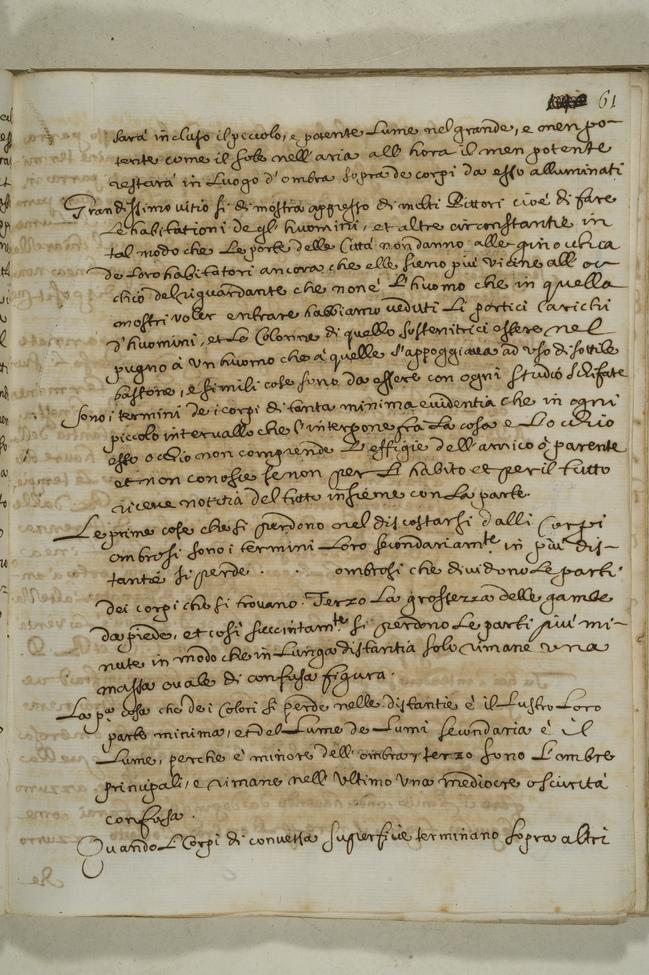 61
sara incluso il piccolo, e potente Lume nel grande, e men po-
tente come il sole nell'aria all'hora il men potente
restara in Luogo d'ombra sopra de corpi da esso alluminati
Grandissimo vitio si dimostra appresso di molti Pittori cioè di fare
Le habitationi de gl'huomini, et altre circonstantie in
tal modo che Le porte delle Città non danno alle ginocchia
de Loro habitatori ancora che elle sieno più vicine all'oc-
chio del riguardante che non è L'huomo che in quella
mostri voler entrare habbiamo veduti Li portici carichi
d'huomini, et Le Colonne di quello sostenitrici essere nel
pugno à un huomo che à quelle s'appoggiava ad uso di sottile
bastone, e simili cose sono da essere con ogni studio schifate
Sono i termini de i corpi di tanta minima evidentia che in ogni
piccolo intervallo che s'interpone fra La cosa e L'occhio
esso occhio non comprende L'effigie dell'amico ò parente
et non conosce se non per L'habito et per il tutto
riceve notitia del tutto insieme con La parte
Le prime cose che si perdono nel discostarsi dalli Corpi
ombrosi sono i termini Loro secondariamte in più dis-
tantie si perde . . ombrosi che dividono Le parti
dei corpi che si trovano. Terzo La grossezza delle gambe
da piede, et così succintamte si perdono Le parti più mi-
nute in modo che in Lunga distantia solo rimane una
massa ovale di confusa figura.
La pa cosa che de i Colori si perde nelle distantie è il Lustro Loro
parte minima, et del Lume de Lumi secondaria è il
Lume, perche è minore dell'ombra, terzo sono L'ombre
principali, e rimane nell'ultimo una mediocre oscurità
confusa.
Quando L Corpi di convessa superficie terminano sopra altri